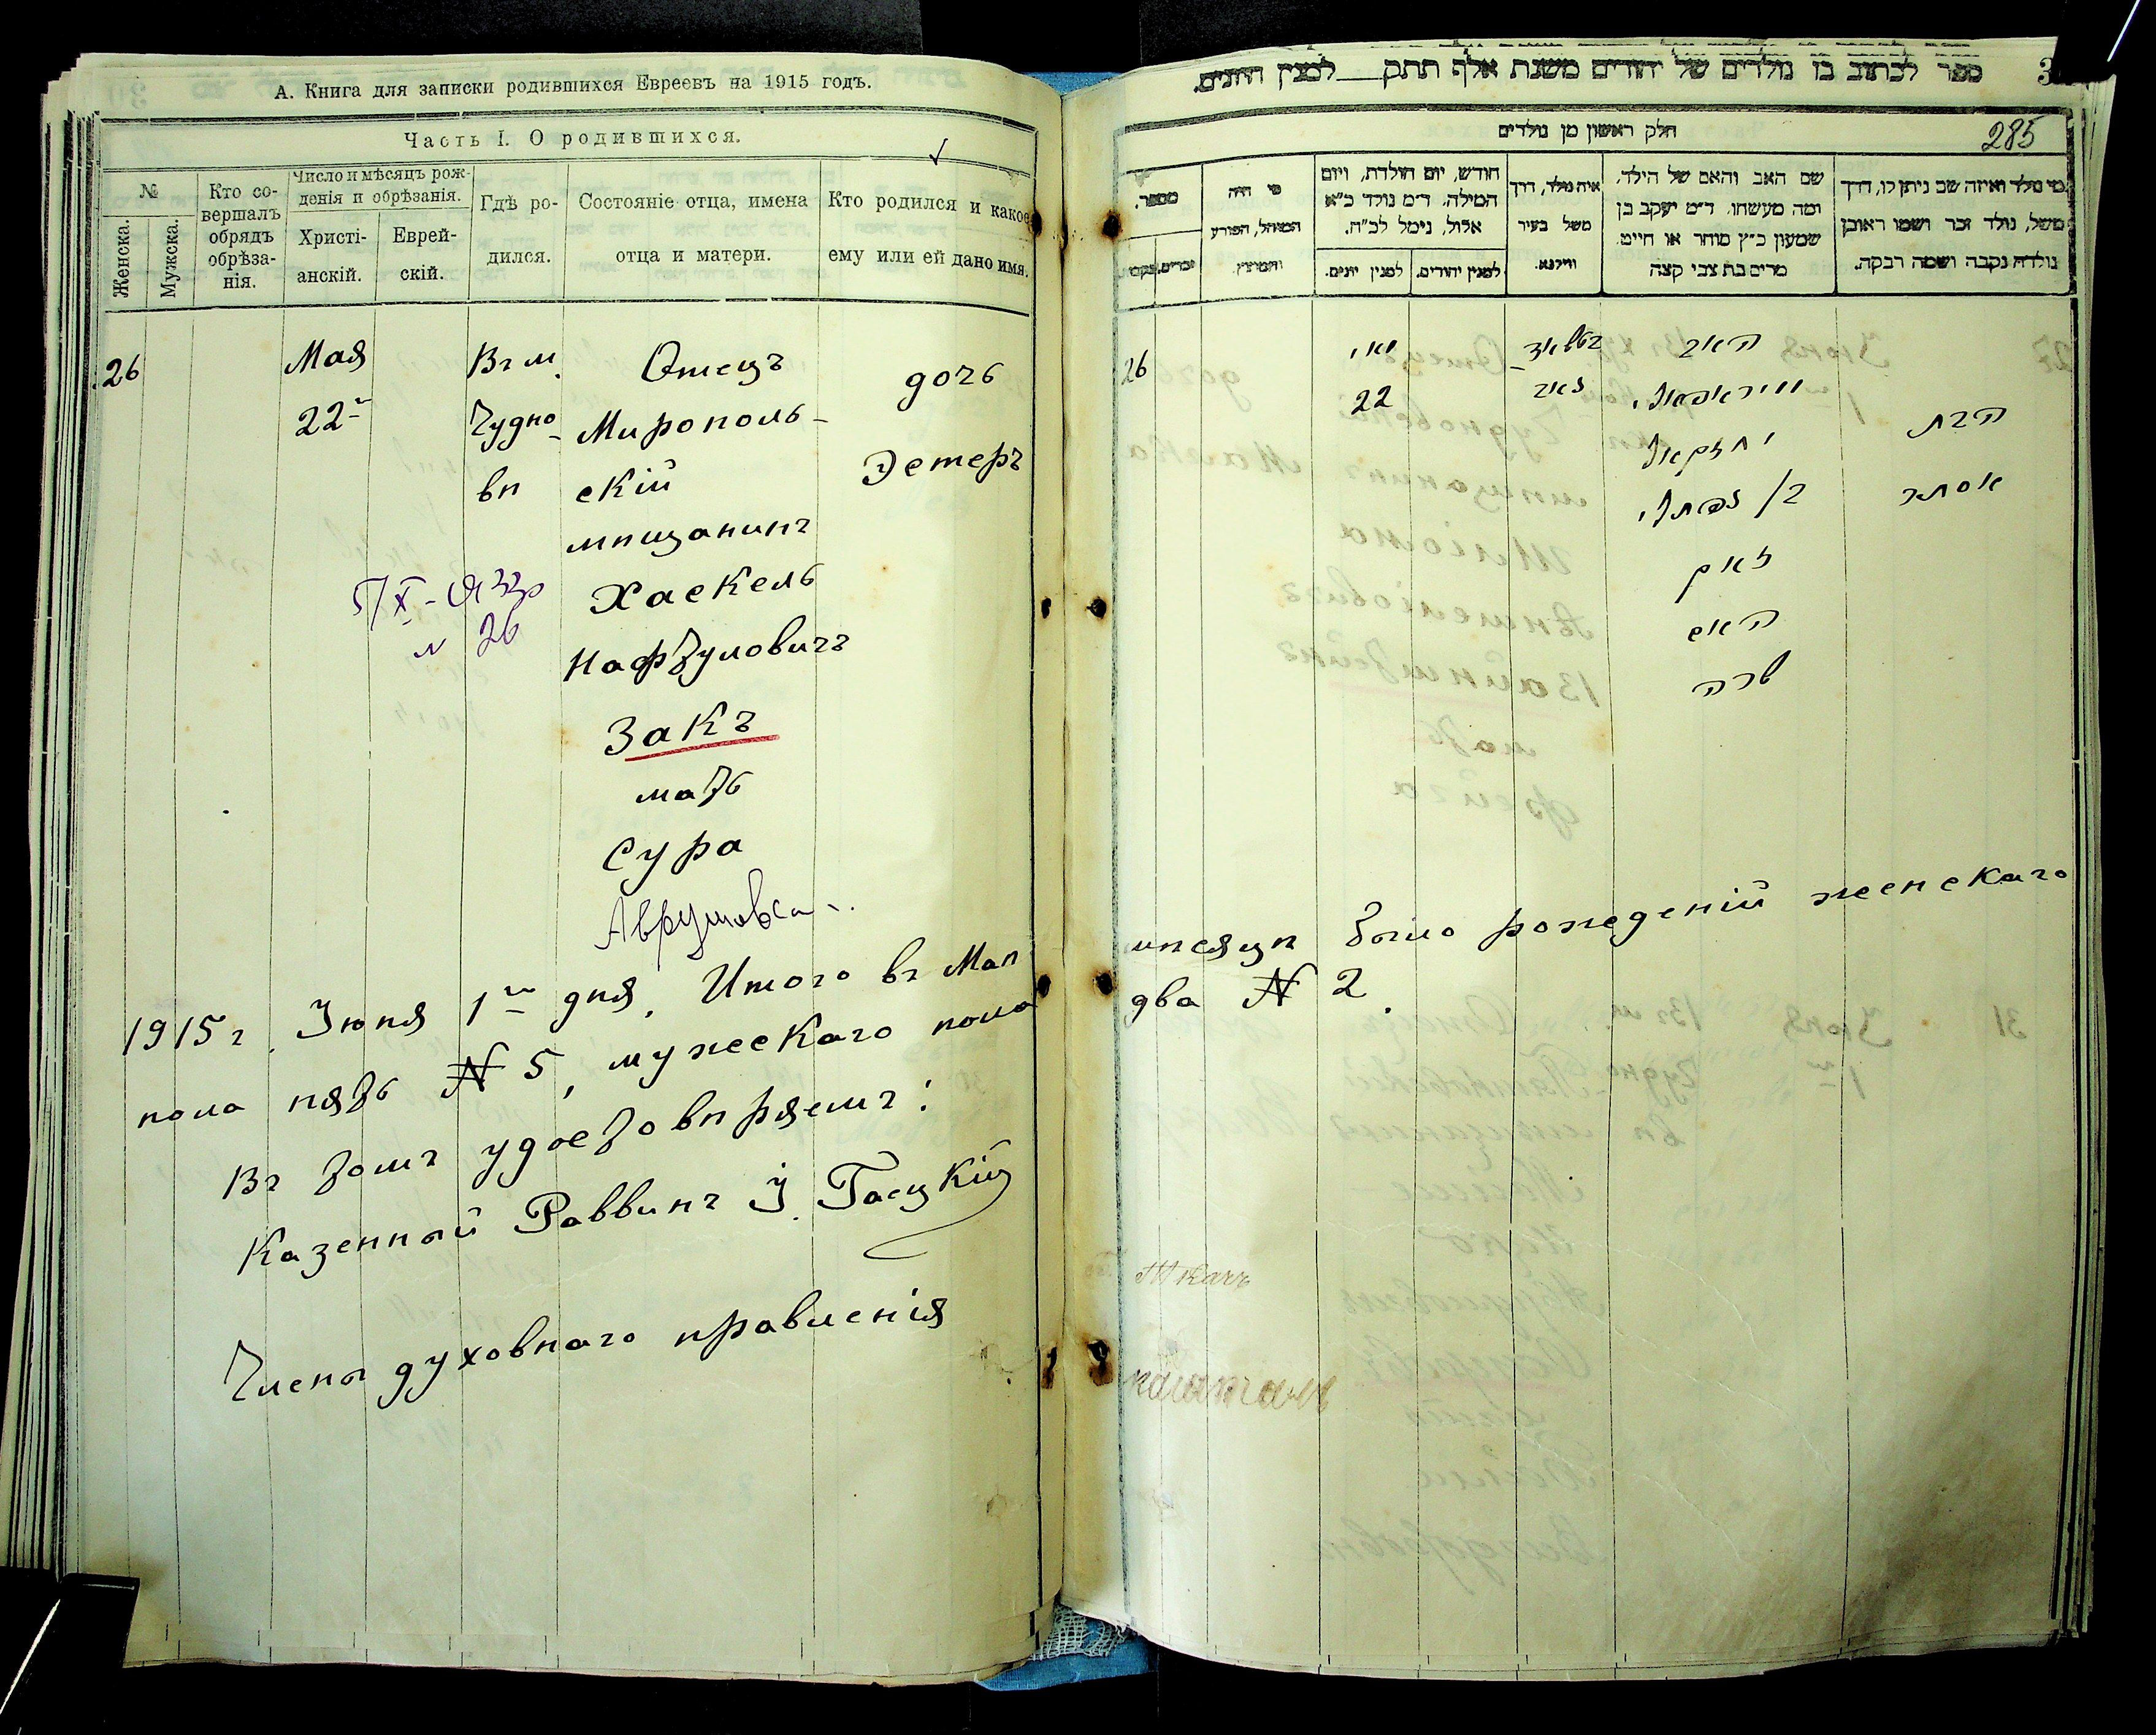 А. Книга для записки родившихся Евреевъ на 1915 годъ.
Часть I. О родившихся.
№
Женска.
Мужска.
Кто со-
вершалъ
обрядъ
обрѣза-
нія.
Число и мѣсяцъ рож-
денія и обрѣзанія.
Христі-
анскій.
Еврей-
скій.
Гдѣ ро-
дился.
Состояніе отца, имена
отца и матери.
Кто родился и какое
ему или ей дано имя.
26
Мая
22
Въ м.
Чудно-
вѣ
Отецъ
Мирополь-
скій
мѣщанинъ
Хаскель
Нафтуловичъ
Закъ
мать
Сура
Аврумовна
дочь
Эстеръ
26
1915 г. Іюня 1 дня. Итого въ Маѣ
мѣсяцѣ было рожденій женскаго
пола пять № 5, мужескаго пола
два № 2.
Въ томъ удостовѣряемъ:
Казенный Раввинъ
Члены духовнаго правленія
ספר לכתוב בו נולדים של יהודים משנת אלף תתק למנין היונים.
285
חלק ראשון מן נולדים
מי נולד ואיזה שם ניתן לו, דרך
משל, נולד זכר ושמו ראובן
נולדה נקבה ושמה רבקה.
שם האב והאם של הילד,
ומה מעשהו. ד״מ יעקב בן
שמעון כ״ץ סוחר או חייט
מרים בת צבי קצה
איה נולד, דרך
משל בעיר
ווילנא.
חודש, יום הולדת, ויום
המילה. ד״מ נולד כ״א
אלול, נימל לכ״ח.
למנין יהודים.
למנין יונים.
מי היה
המוהל, הפורע
והמוצץ.
מספר.
זכרים.
26
מאי
22
האב
יחזקאל
זאק
האם
שרה
הבת
אסתר